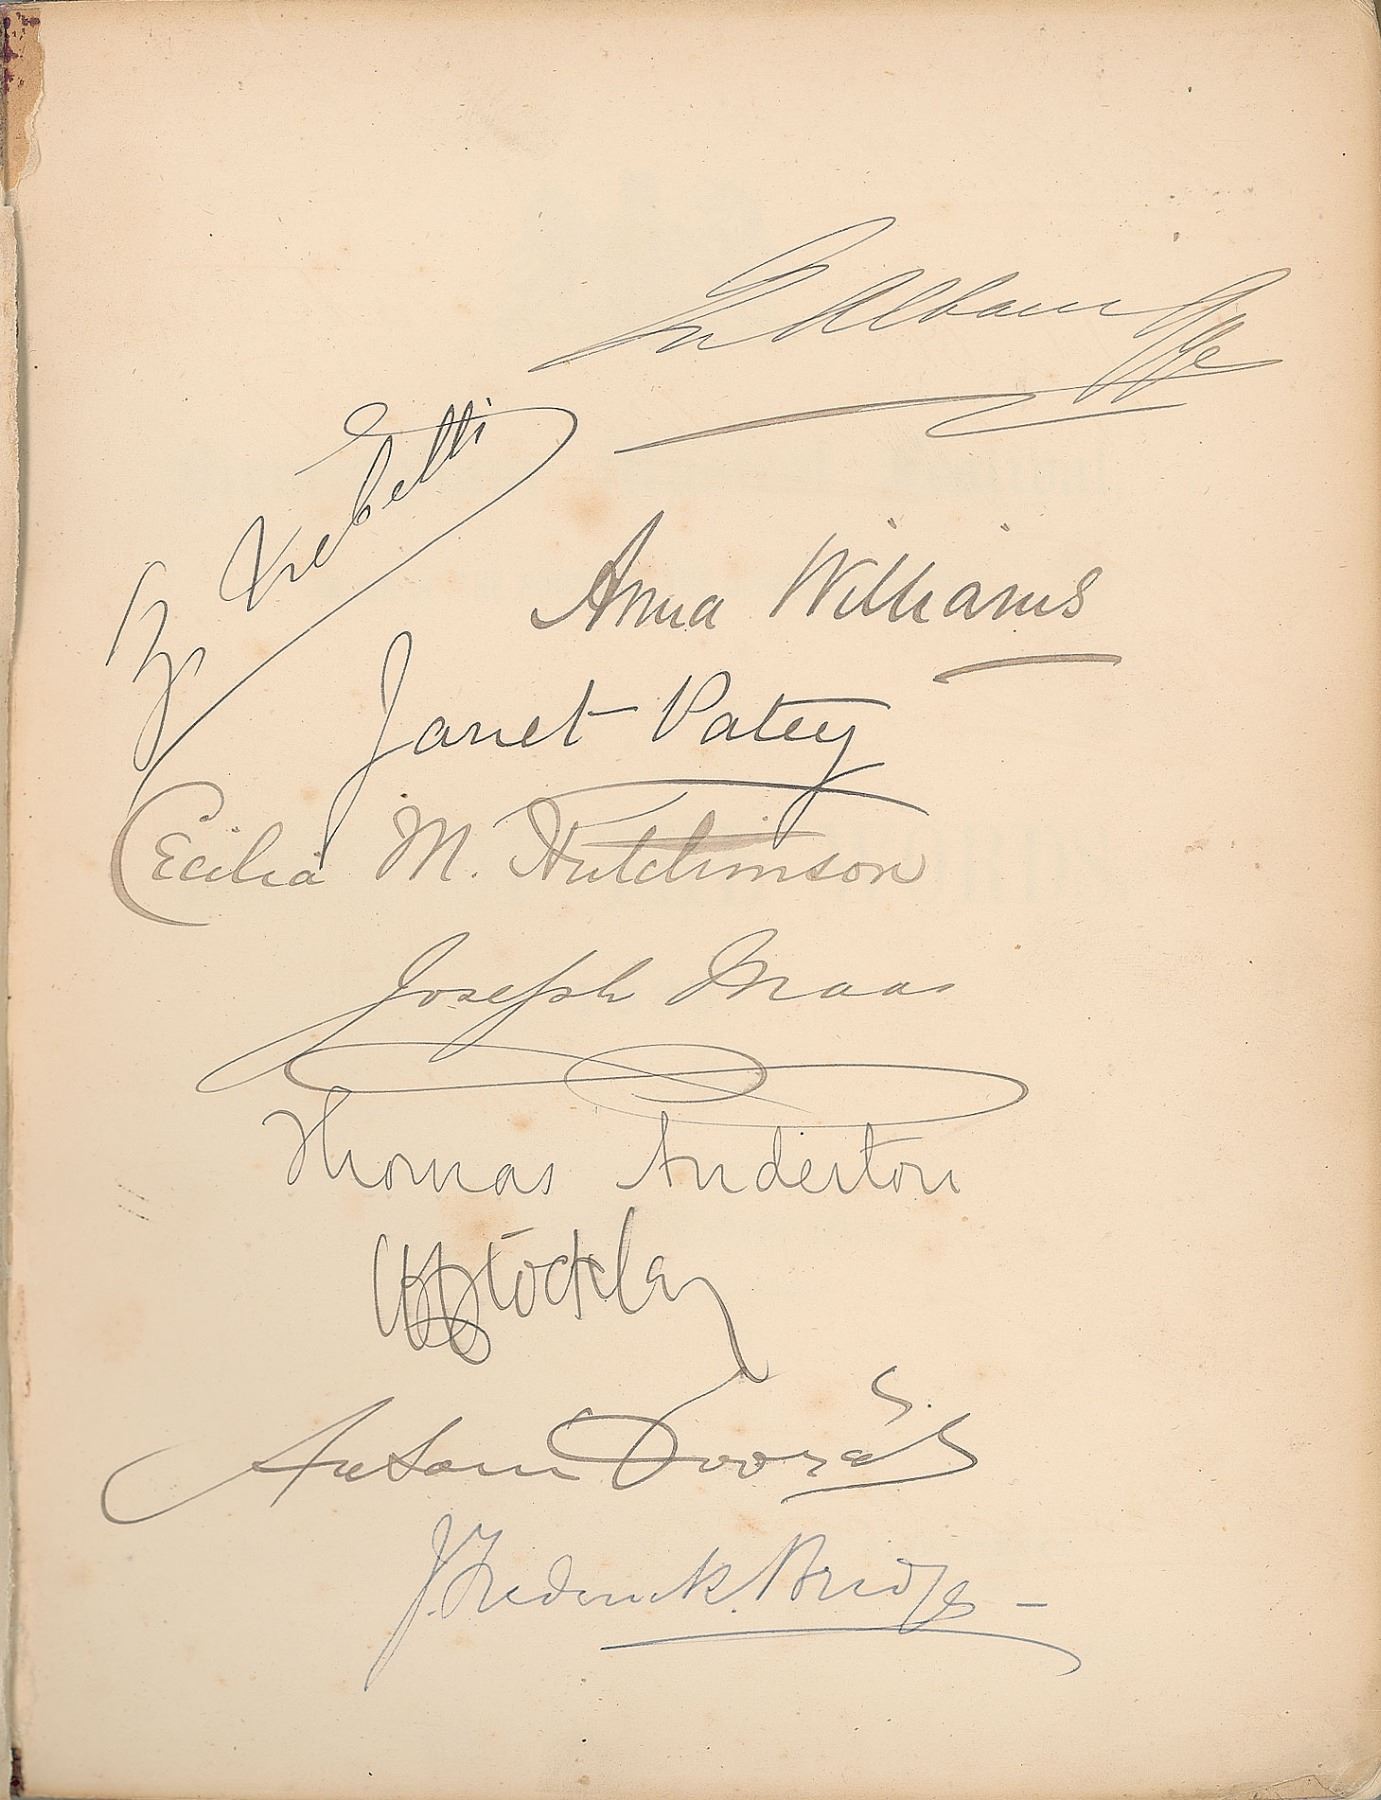 Em Albani Gye
Z. Trebelli
Anna Williams
Janet Patey
Cecilia M. Hutchinson
Joseph Maas
Thomas Anderton
W C Stockley
Antonín Dvořák
J. Frederick. Bridge –